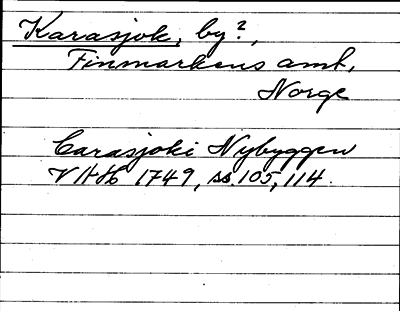 Karasjok, by?,
Finmarkens amt,
Norge
Carasjoki Nybyggen
VHH 1749, ss. 105, 114.